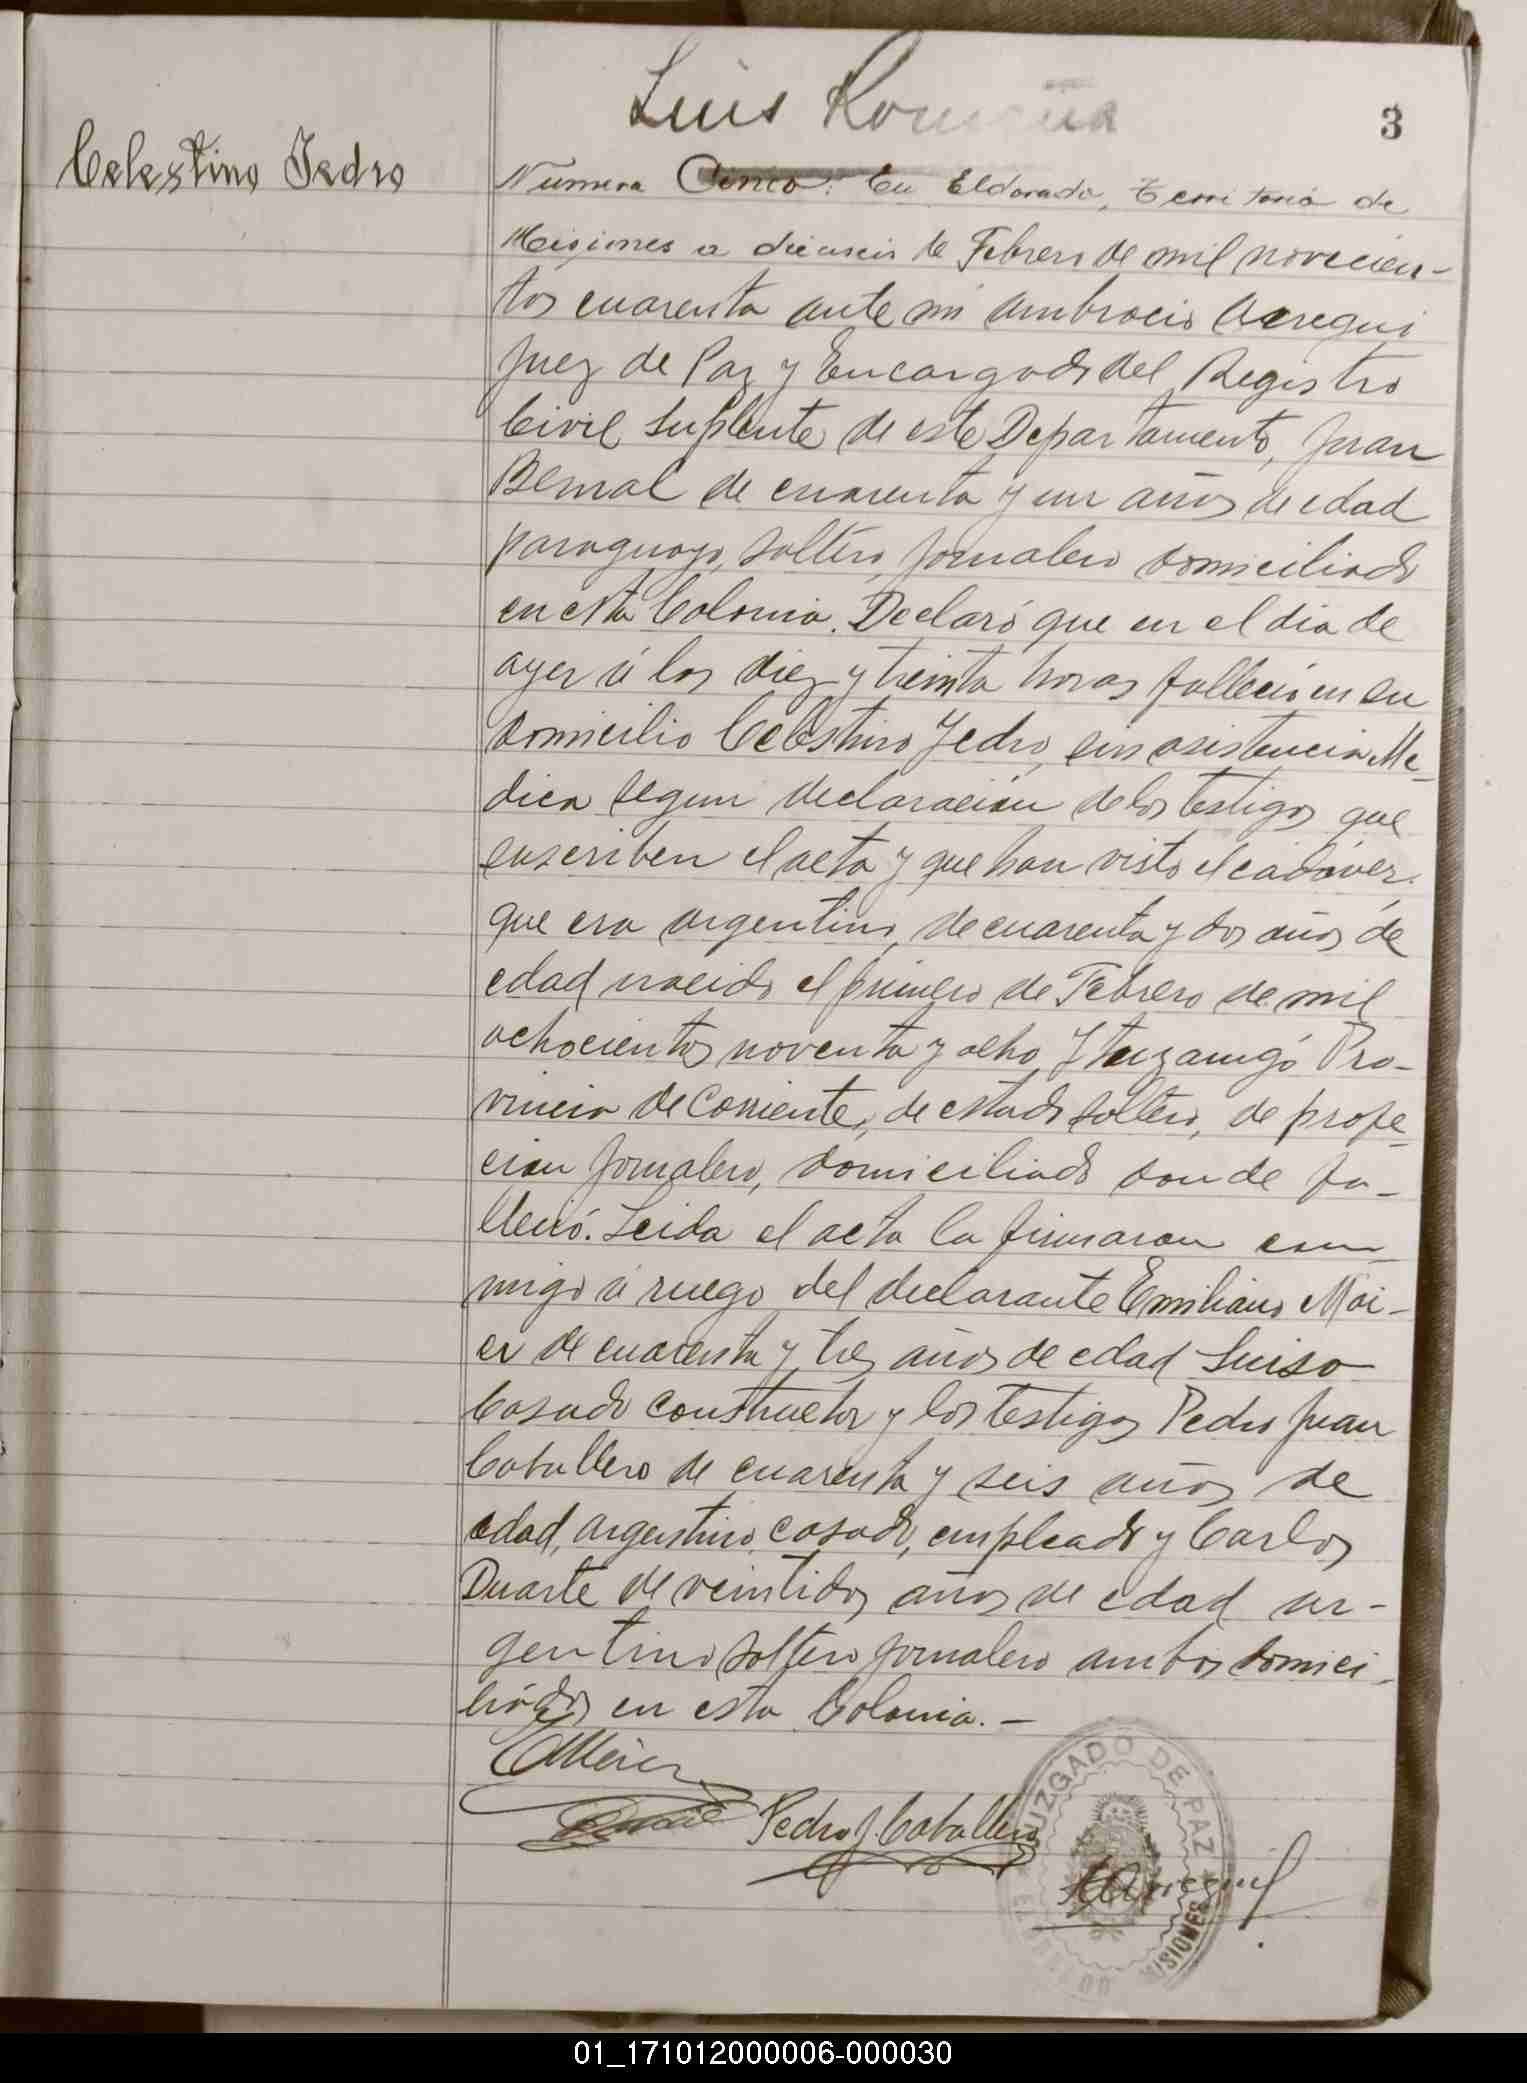 Luis Romaña
3
Celestino Jedro
Numero Cinco: En Eldorado, Territorio de
Misiones a dieciseis de Febrero de mil novecien-
tos cuarenta ante mi Ambrocio Arregui
Juez de Paz y Encargado del Registro
Civil Suplente de este Departamento, Juan
Bernal de cuarenta y un años de edad
paraguayo, soltero, jornalero domiciliado
en esta Colonia. Declaró que en el dia de
ayer á las diez y treinta horas falleció en su
domicilio Celestino Jedro, sin asistencia Me-
dica segun declaración de los testigos que
suscriben el acta y que han visto el cadáver.
que era argentino, de cuarenta y dos años de
edad nacido el primero de Febrero de mil
ochocientos noventa y ocho, Ytuzaingó Pro-
vincia de Corrientes, de estado soltero, de profe-
cion jornalero, domiciliado donde fa-
lleció. Leida el acta la firmaron con-
migo á ruego del declarante Emiliano Mai-
er de cuarenta y tres años de edad Suiso
Casado constructor y los testigos Pedro Juan
Caballero de cuarenta y seis años de
edad, argentino, casado, empleado y Carlos
Duarte de veintidos años de edad ar-
gentino soltero jornalero ambos domici-
liádos en esta Colonia. —
EMeier
Pedro J. Caballero
AArregui
JUZGADO DE PAZ
ELDORADO MISIONES
01_171012000006-000030